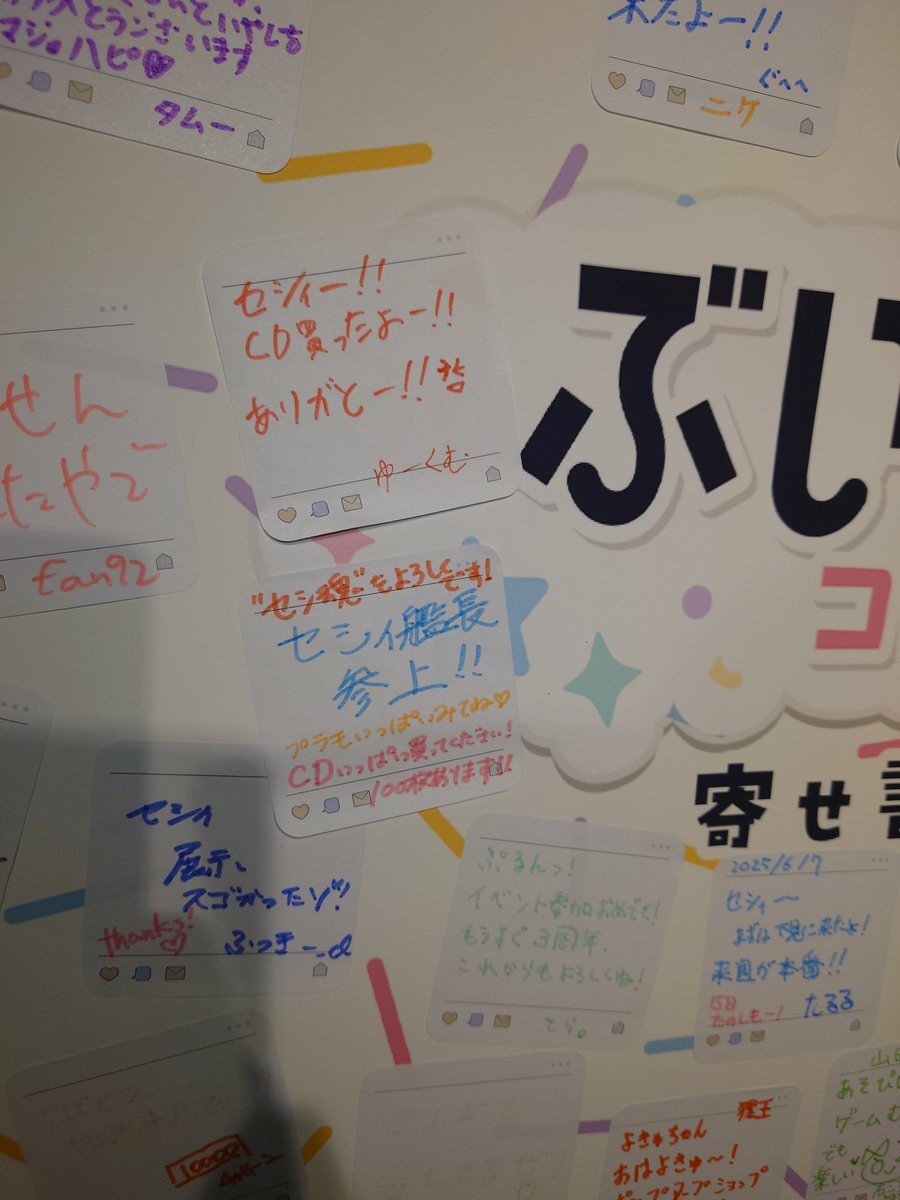 マジ。ハピ♡
タムー
来たよー!!
ぐへへ
ニケ
セシィー!!
CD買ったよー!!
ありがとー!!
ゆーくむ
せん
たやで
fan92
ぶい
コ
寄せ書
"セシ魂"をよろしくです!
セシィ艦長
参上!!
プラモいっぱいみてね♡
CDいっぱい買ってください!
100枚あります!!
セシィ
展示、
スゴかったゾ!!
thanks!♡
ぷるんっ!
イベント参加おめでと!
もうすぐ3周年、
これからもよろしくね!
てら。
2025/6/7
セシィ〜
まずは下見に来たよ!
来週が本番!!
15日
たのしも〜!
たるる
よきゅちゃん
おはよきゅ〜!
ポップアップショップ
あそび
ゲームむ
でも
楽しい